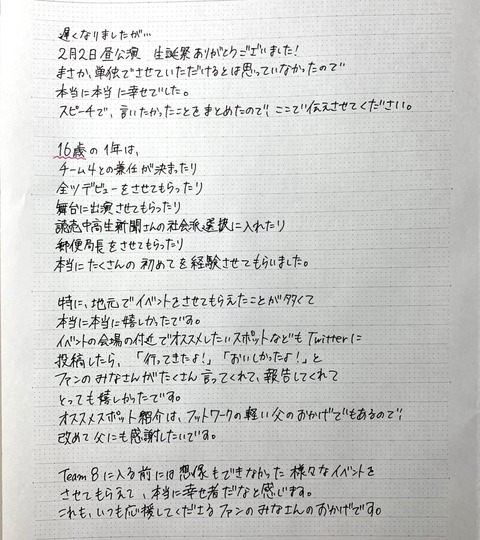 遅くなりましたが…
2月2日昼公演 生誕祭ありがとうございました!
まさか、単独でさせていただけるとは思っていなかったので
本当に本当に幸せでした。
スピーチで、言いたかったことをまとめたので、ここで伝えさせてください。
16歳の1年は、
チーム4との兼任が決まったり
全ツデビューをさせてもらったり
舞台に出演させてもらったり
読売中高生新聞さんの社会派選抜に入れたり
郵便局長をさせてもらったり
本当にたくさんの初めてを経験させてもらいました。
特に、地元でイベントをさせてもらえたことが多くて
本当に本当に嬉しかったです。
イベントの会場の付近でオススメしたいスポットなどもTwitterに
投稿したら、「行ってきたよ!」「おいしかったよ!」と
ファンのみなさんがたくさん言ってくれて、報告してくれて
とっても嬉しかったです。
オススメスポット紹介は、フットワークの軽い父のおかげでもあるので、
改めて父にも感謝したいです。
Team 8に入る前には想像もできなかった様々なイベントを
させてもらえて、本当に幸せ者だなと感じます。
これも、いつも応援してくださるファンのみなさんのおかげです。